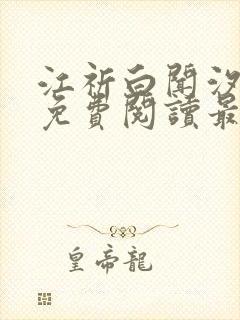 江祈白闻汐
免費閱讀最
皇帝龍